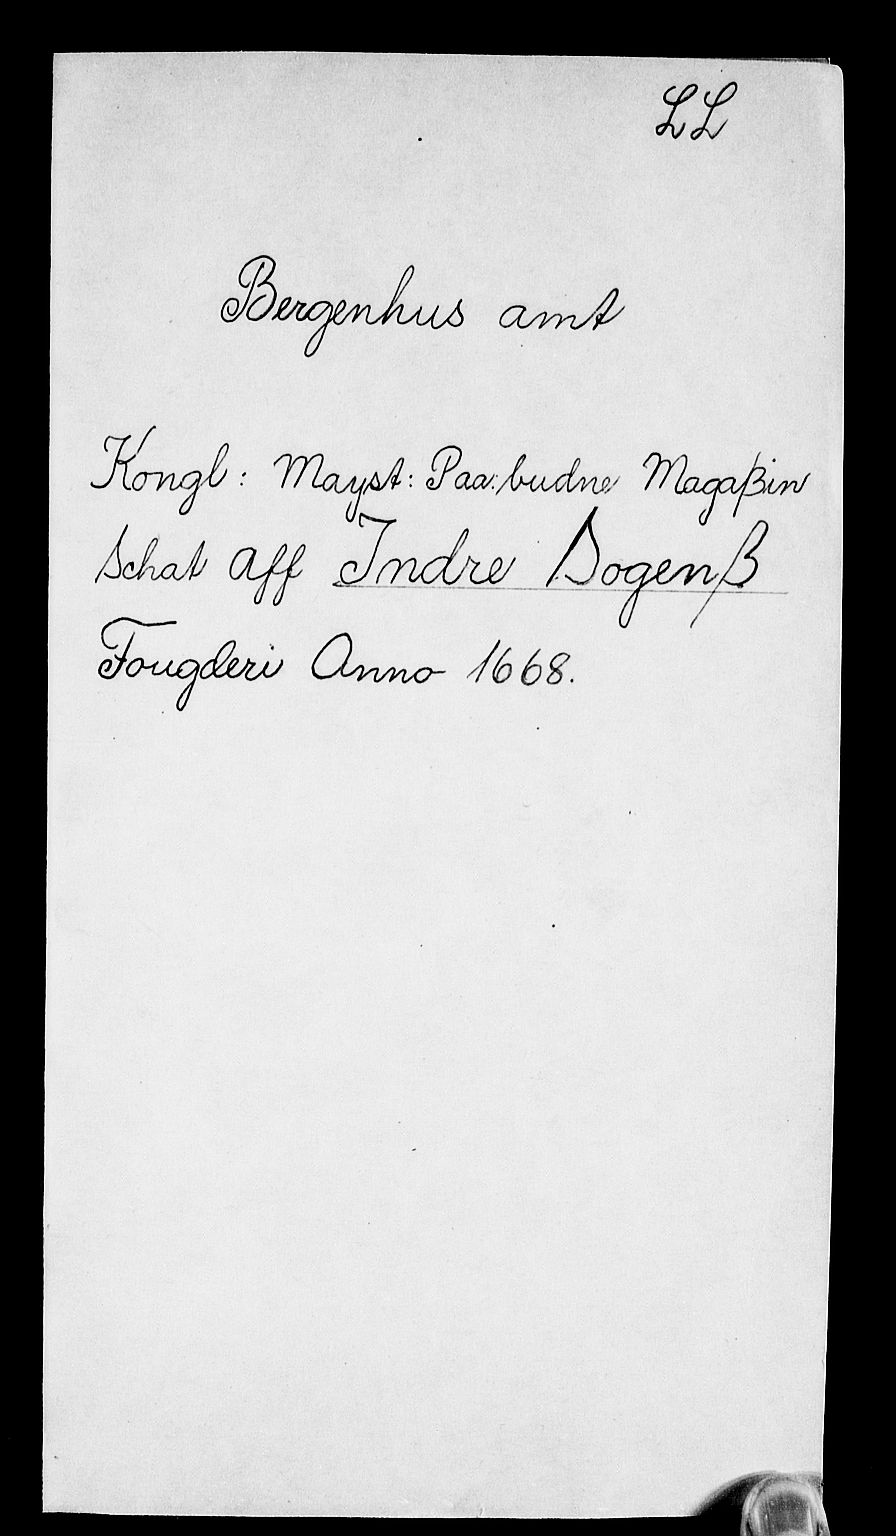 LL
Bergenhus amt
Kongl: Mayst: Paa:budne Magaßin
Schat aff Indre Sogenß
Fougderi Anno 1668.